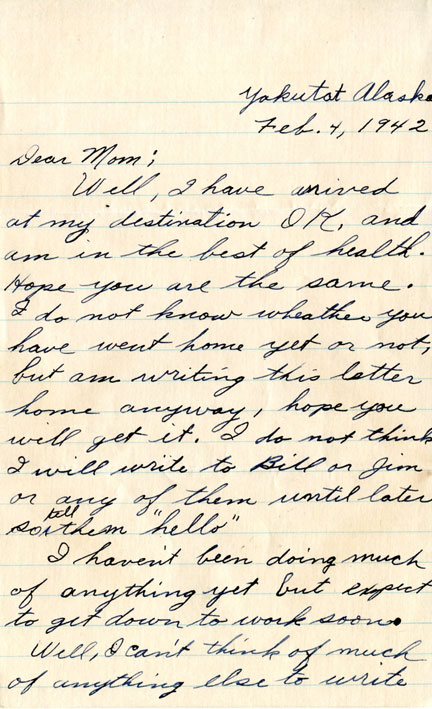 Yakutat Alaska
Feb. 4, 1942
Dear Mom;
Well, I have arrived
at my destination OK, and
am in the best of health.
Hope you are the same.
I do not know wheather you
have went home yet or not,
but am writing this letter
home anyway, hope you
will get it. I do not think
I will write to Bill or Jim
or any of them until later
so tell them "hello"
I haven't been doing much
of anything yet but expect
to get down to work soon.
Well, I can't think of much
of anything else to write